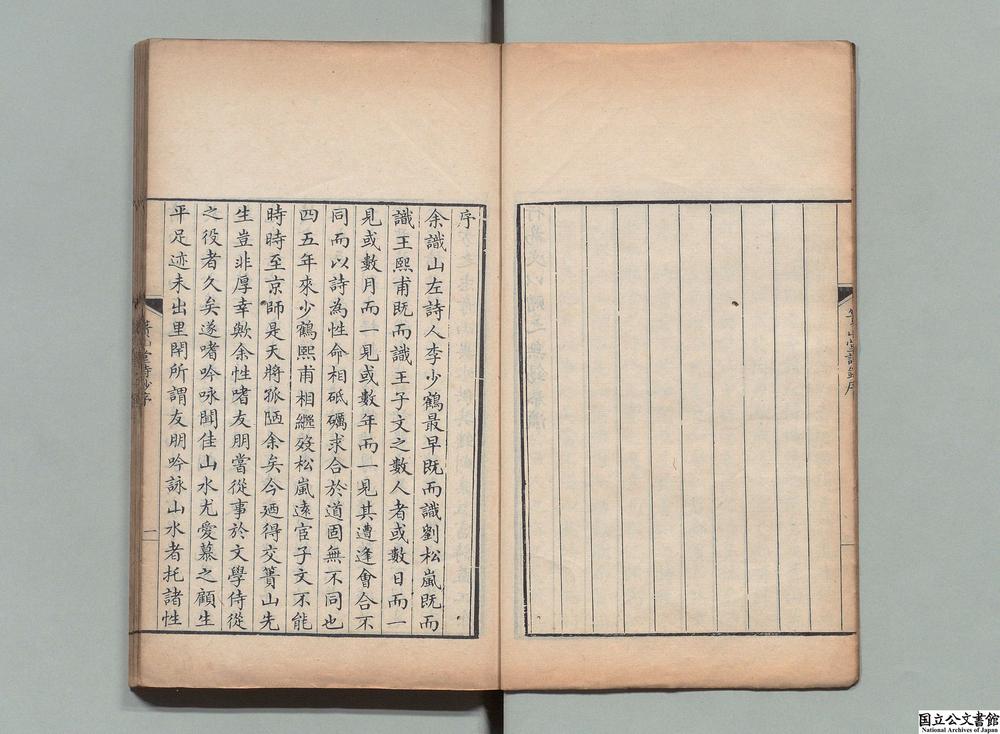 序
余識山左詩人李少鶴最早既而識劉松嵐既而
識王熙甫既而識王子文之數人者或數日而一
見或數月而一見或數年而一見其遭逢會合不
同而以詩為性命相砥礪求合於道固無不同也
四五年來少鶴熙甫相繼歿松嵐遠宦子文不能
時時至京師是天將孤陋余矣今迺得交簣山先
生豈非厚幸歟余性嗜友朋嘗從事於文學侍從
之役者久矣遂嗜吟咏聞佳山水尤愛慕之顧生
平足迹未出里閈所謂友朋吟詠山水者托諸性
簣山堂詩鈔序
一
国立公文書館
National Archives of Japan